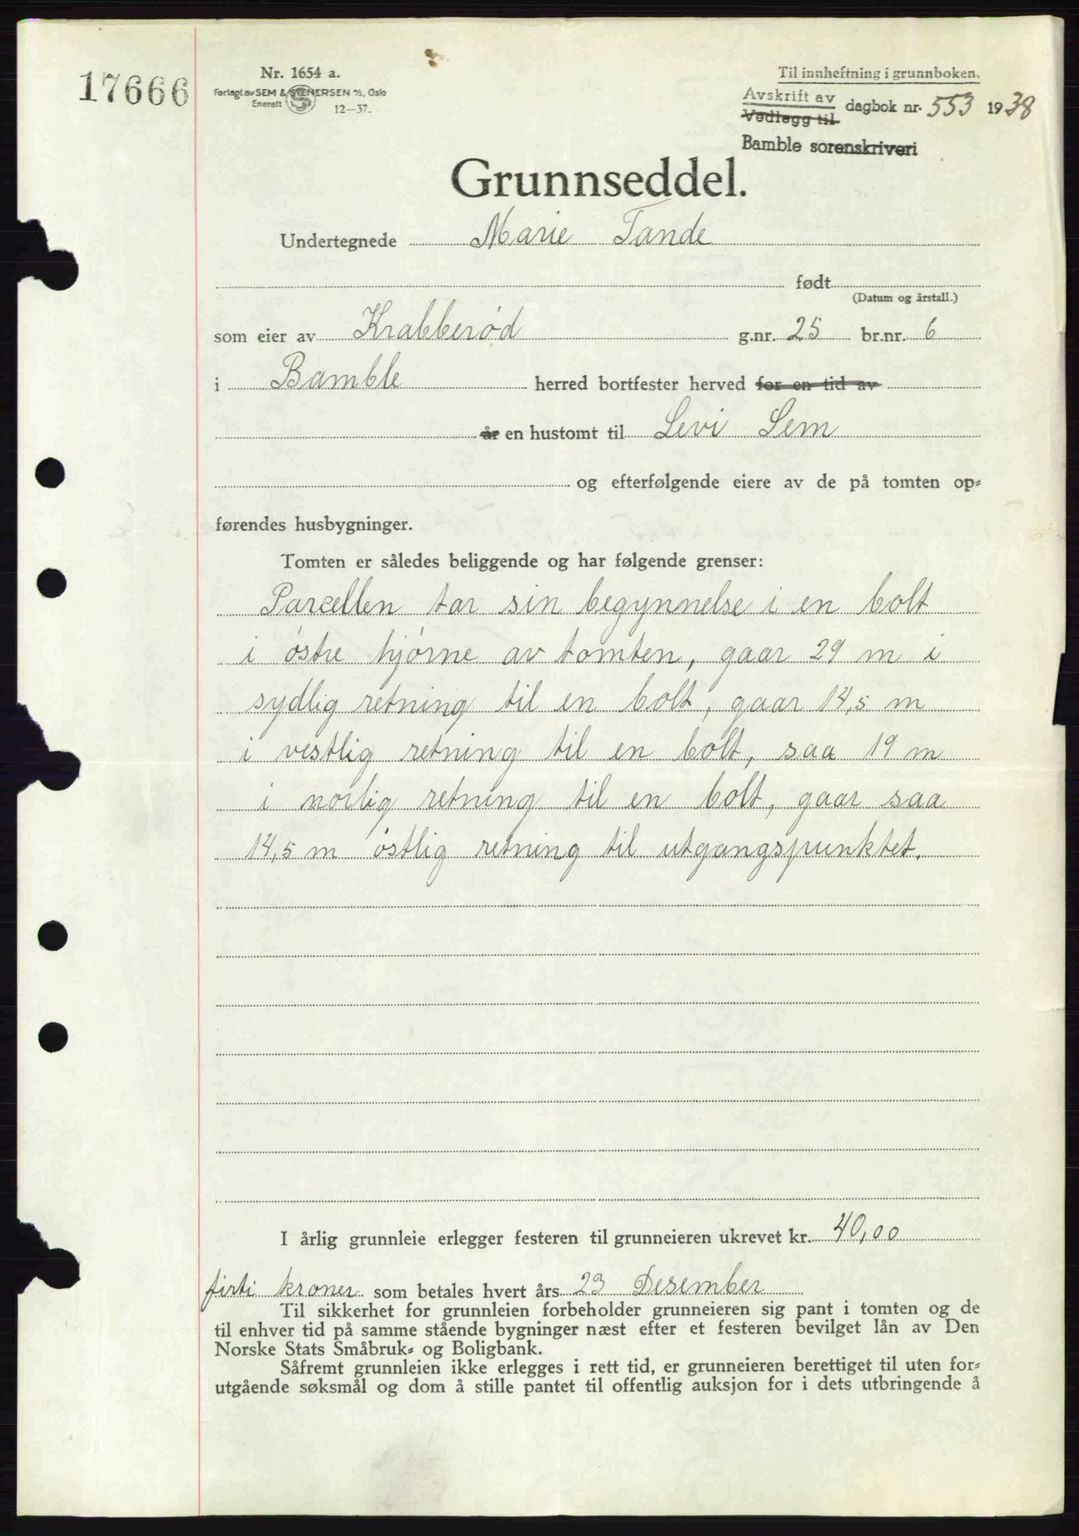 17666
Nr. 1654 a.
Forlagt av SEM & STENERSEN A/S, Oslo
Enerett
12—37.
Til innheftning i grunnboken.
Avskrift av
Vedlegg til
dagbok nr. 553 1938
Bamble sorenskriveri
Grunnseddel.
Undertegnede Marie Tande
født
(Datum og årstall.)
som eier av Krabberød g.nr. 25 br.nr. 6
i Bamble herred bortfester herved for en tid av
år en hustomt til Levi Sem
og efterfølgende eiere av de på tomten op-
førendes husbygninger.
Tomten er således beliggende og har følgende grenser:
Parcellen tar sin begynnelse i en bolt
i østre hjørne av tomten, gaar 29 m i
sydlig retning til en bolt, gaar 14,5 m
i vestlig retning til en bolt, saa 19 m
i norlig retning til en bolt, gaar saa
14,5 m østlig retning til utgangspunktet.
I årlig grunnleie erlegger festeren til grunneieren ukrevet kr. 40,00
firti kroner som betales hvert års 23 Desember
Til sikkerhet for grunnleien forbeholder grunneieren sig pant i tomten og de
til enhver tid på samme stående bygninger næst efter et festeren bevilget lån av Den
Norske Stats Småbruk- og Boligbank.
Såfremt grunnleien ikke erlegges i rett tid, er grunneieren berettiget til uten for-
utgående søksmål og dom å stille pantet til offentlig auksjon for i dets utbringende å